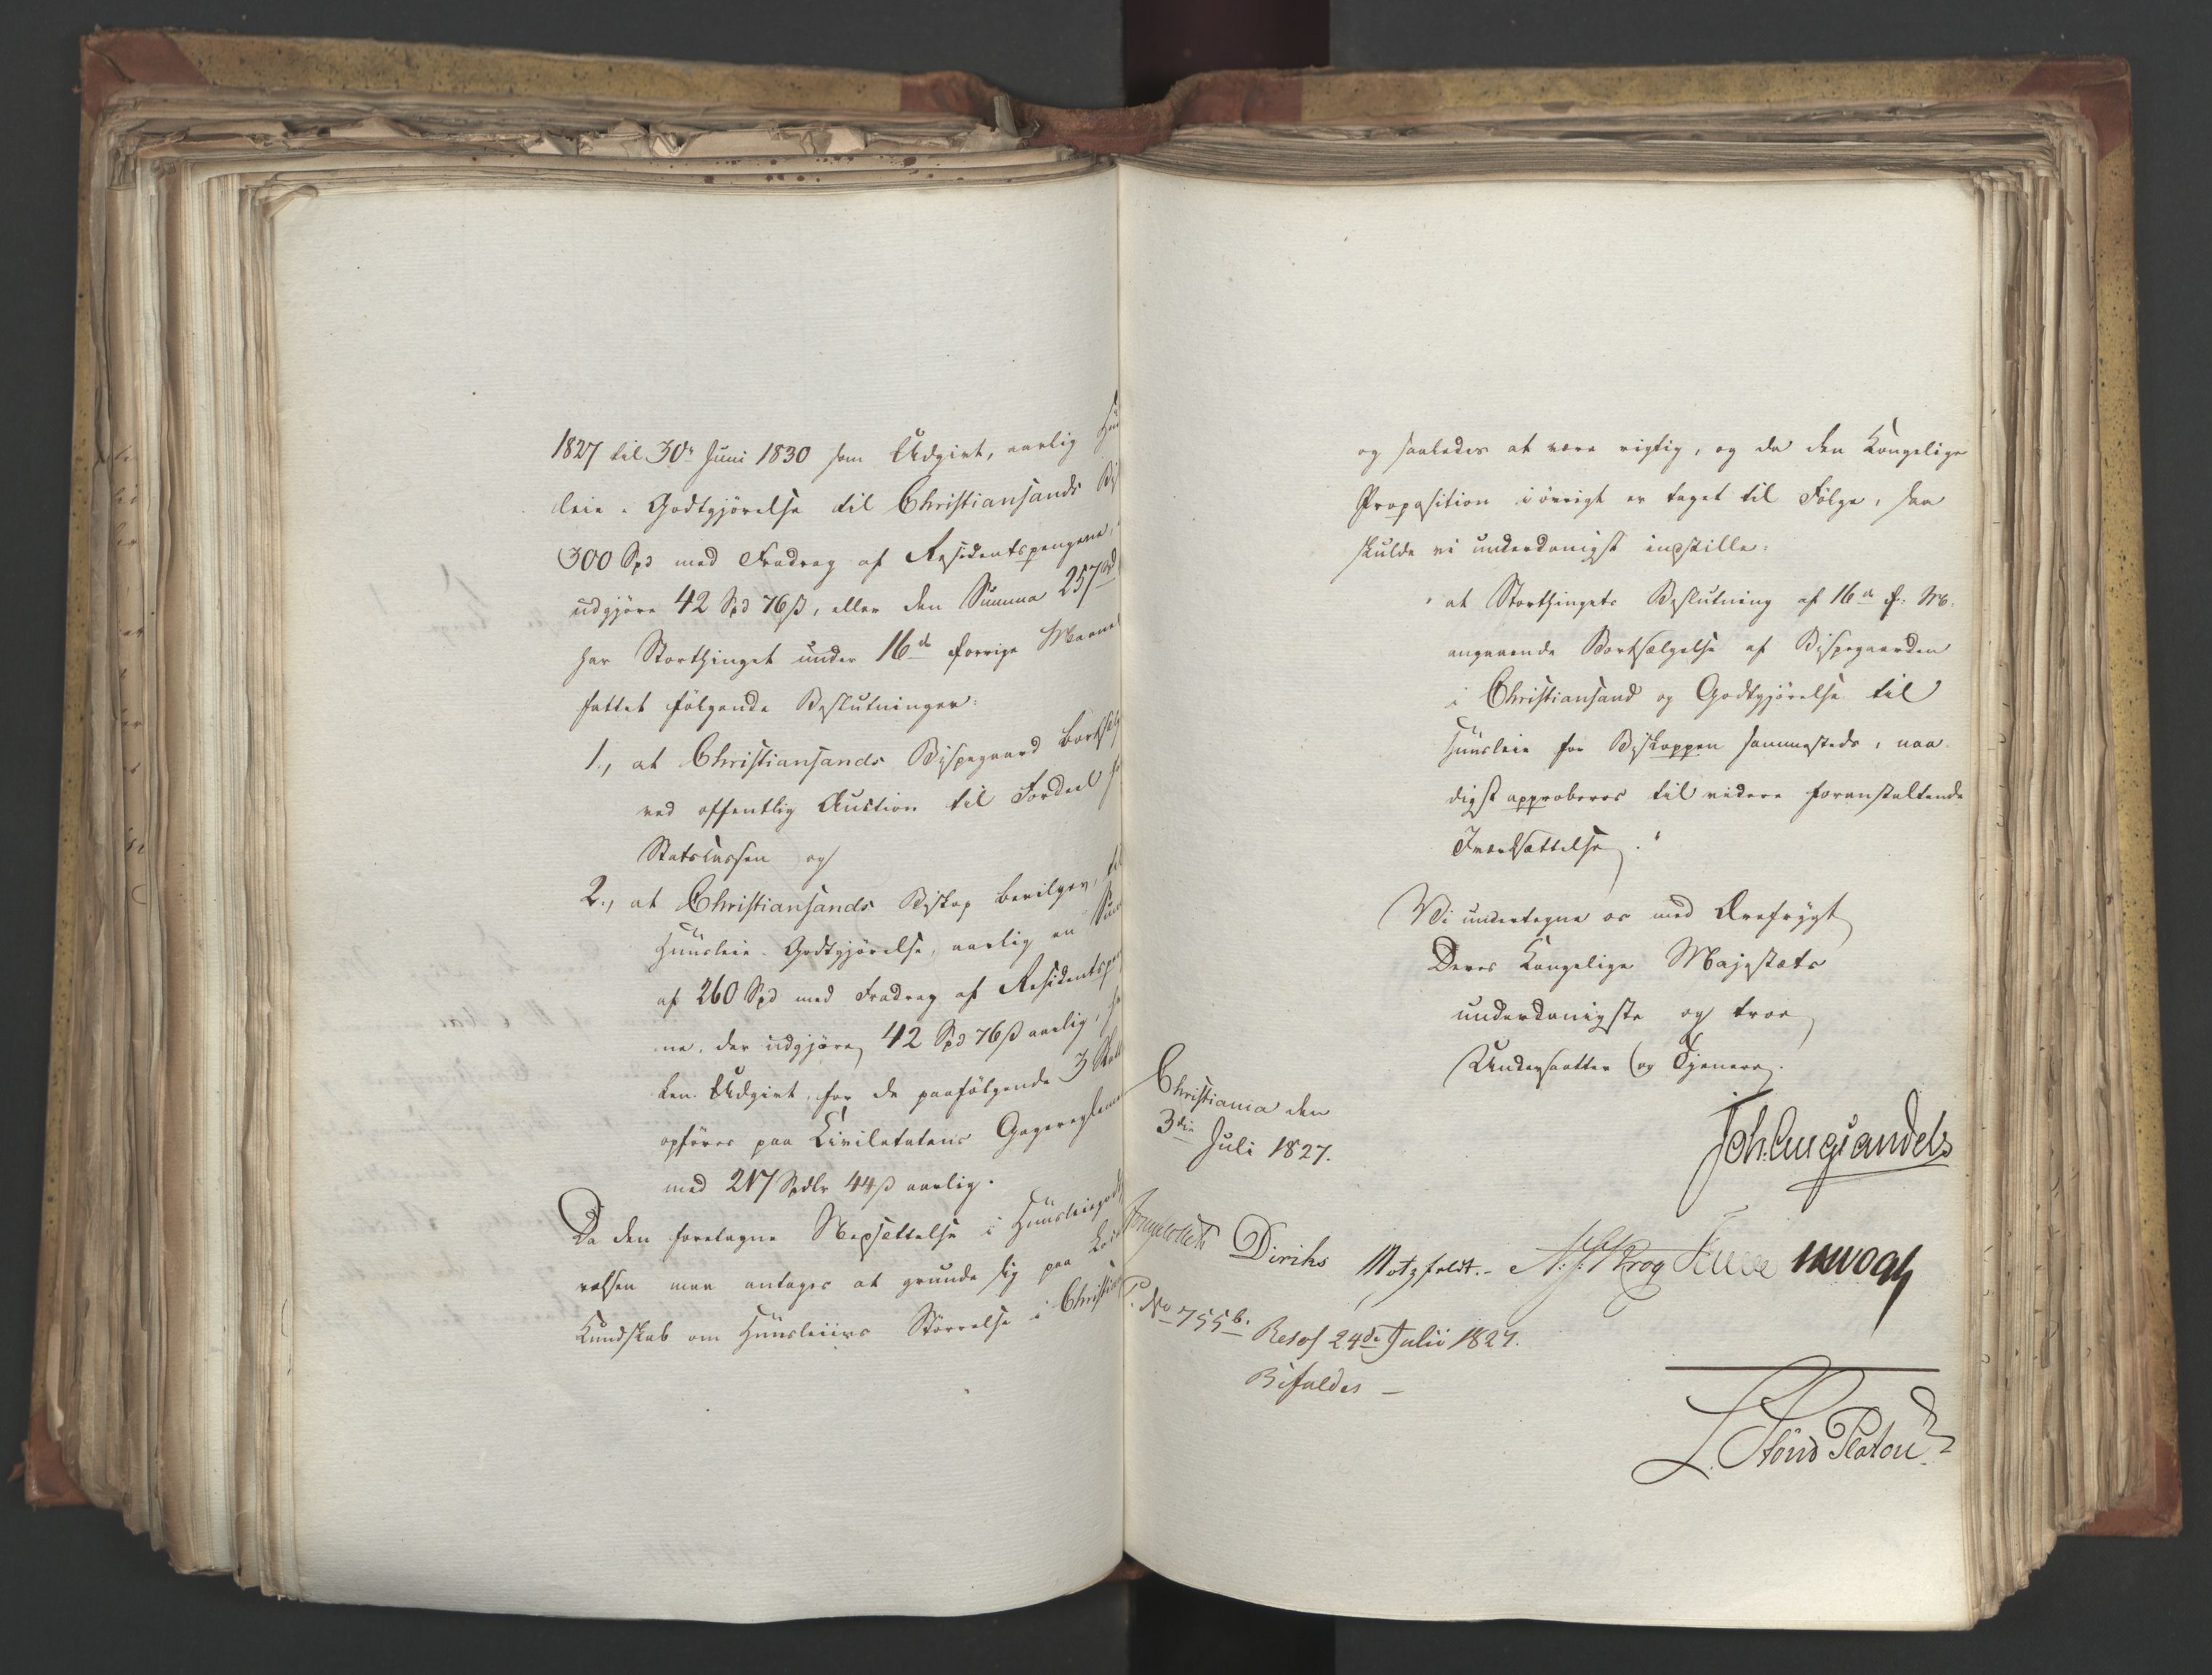 1827 til 30te Juni 1830 som Udgivt, aarlig Huu
leie-Godtgjörelse til Christiansands Bi
300 Spd med Fradrag af Residentspengene,
udgjöre 42 Spd 76ß, eller den Summa 257
har Storthinget under 16de forrige Maane
fattet fölgende Beslutninger:
1., at Christiansands Bispegaard bortsælg
ved offentlig Auction til Fordeel fo
Statscassen og
2., at Christiansands Biskop bevilges, til
Huusleie-Godtgjörelse, aarlig en Sum
af 260 Spd med Fradrag af Residentspen
ne, der udgjöre, 42 Spd 76ß aarlig,
ken Udgivt for de paafölgende 3
opföres paa Civiletatens Gagereglem
med 217 Spdlr 44ß aarlig.
Da den foretagne Nedsættelse i Huusleiegodtg
relsen maa antages at grunde sig paa
Kundskab om Huusleiers Störrelse i Christia
og saaledes at være rigtig, og da den Kongelige
Proposition iövrigt er taget til Fölge, saa
skulde vi underdanigst indstille:
"at Storthingets Beslutning af 16de f: M:
angaaende Bortsælgelse af Bispegaarden
i Christiansand og Godtgjörelse til
Huusleie for Biskoppen sammesteds, naa-
digst approberes til videre foranstaltende
Iværksættelse."
Vi undertegne os med Ærefrygt
Deres Kongelige Majestæts
underdanigste og troe
Undersaatter og Tjenere.
Christiania den
3die Juli 1827.
Joh. Aug. Sandels
Diriks Motzfeldt.- Krog
P. No 755b. Resol 24de Julii 1827.
Bifaldes -
L. Stoud Platou